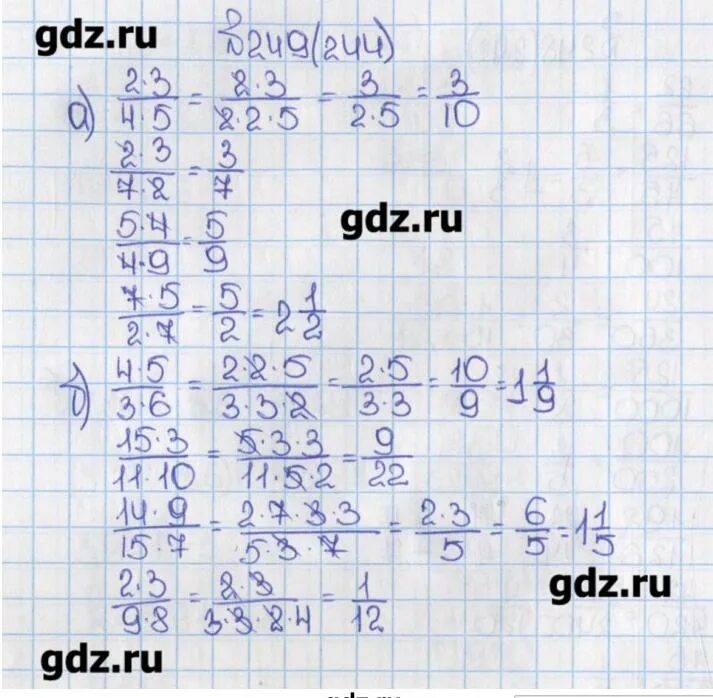 gdz.ru
№249(244)
а) 2·3/4·5 = 2·3/2·2·5 = 3/2·5 = 3/10
2·3/7·2 = 3/7
gdz.ru
5·4/4·9 = 5/9
7·5/2·7 = 5/2 = 2 1/2
б) 4·5/3·6 = 2·2·5/3·3·2 = 2·5/3·3 = 10/9 = 1 1/9
15·3/11·10 = 5·3·3/11·5·2 = 9/22
14·9/15·7 = 2·7·3·3/5·3·7 = 2·3/5 = 6/5 = 1 1/5
gdz.ru
2·3/9·8 = 2·3/3·3·2·4 = 1/12
gdz.ru
gdz.ru